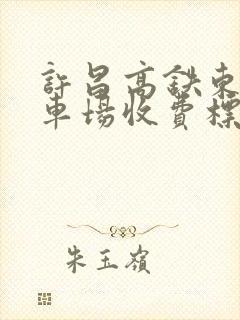 許昌高鉄東
車場收費標
朱玉嶺